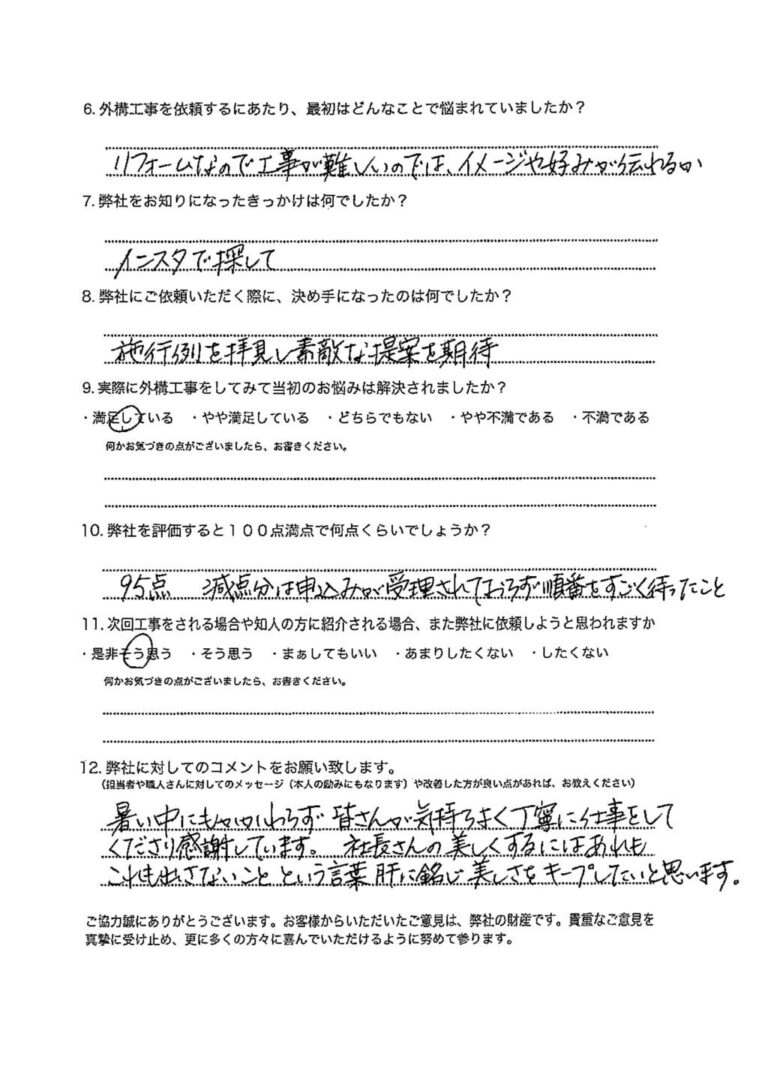 6. 外構工事を依頼するにあたり、最初はどんなことで悩まれていましたか？
リフォームなので工事が難しいのでは、イメージや好みが伝わるか
7. 弊社をお知りになったきっかけは何でしたか？
インスタで探して
8. 弊社にご依頼いただく際に、決め手になったのは何でしたか？
施行例を拝見し素敵な提案を期待
9. 実際に外構工事をしてみて当初のお悩みは解決されましたか？
・満足している ・やや満足している ・どちらでもない ・やや不満である ・不満である
何かお気づきの点がございましたら、お書きください。
10. 弊社を評価すると１００点満点で何点くらいでしょうか？
95点 減点分は申込みが受理されておらず順番をすごく待ったこと
11. 次回工事をされる場合や知人の方に紹介される場合、また弊社に依頼しようと思われますか
・是非そう思う ・そう思う ・まぁしてもいい ・あまりしたくない ・したくない
何かお気づきの点がございましたら、お書きください。
12. 弊社に対してのコメントをお願い致します。
（担当者や職人さんに対してのメッセージ（本人の励みにもなります）や改善した方が良い点があれば、お教えください）
暑い中にもかかわらず 皆さんが気持ちよく丁寧に仕事をして
くださり感謝しています。 社長さんの美しくするにはあれも
これも出さないこと という言葉 肝に銘じ 美しさをキープしたいと思います。
ご協力誠にありがとうございます。お客様からいただいたご意見は、弊社の財産です。貴重なご意見を
真摯に受け止め、更に多くの方々に喜んでいただけるように努めて参ります。